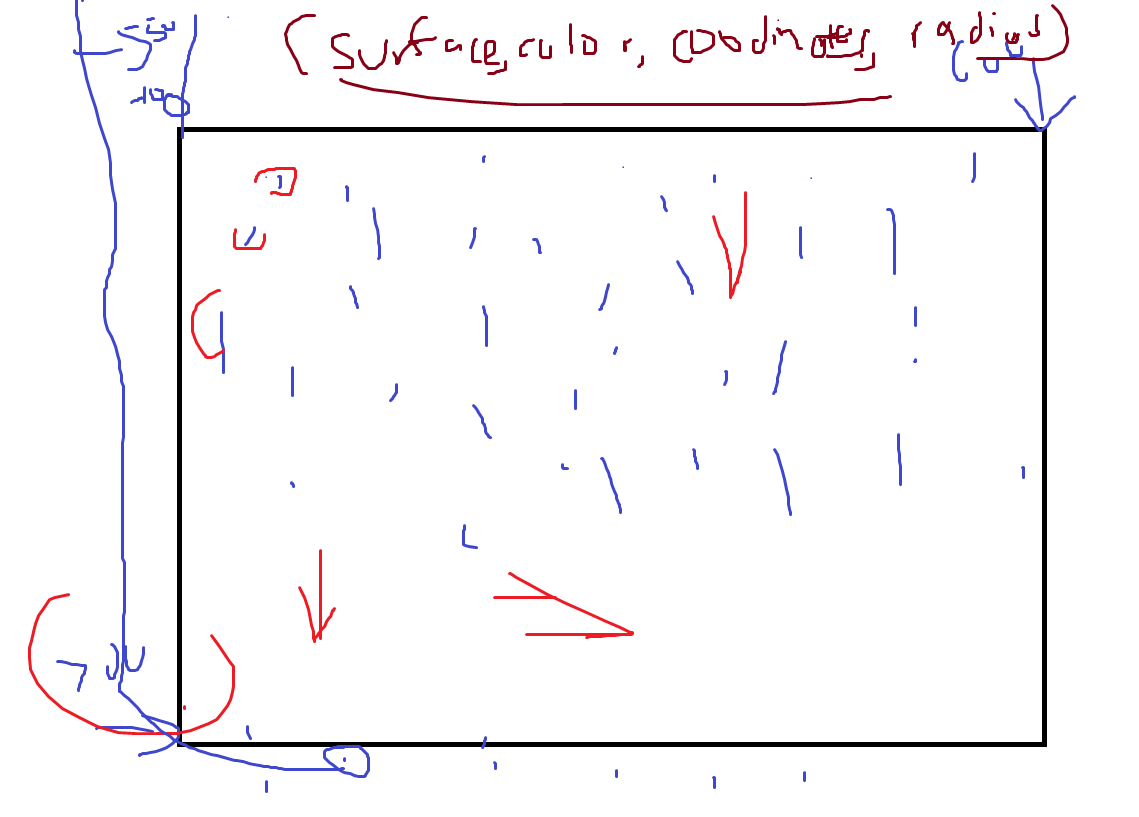 -50
(surface, color, coodinates, radius)
-100
700